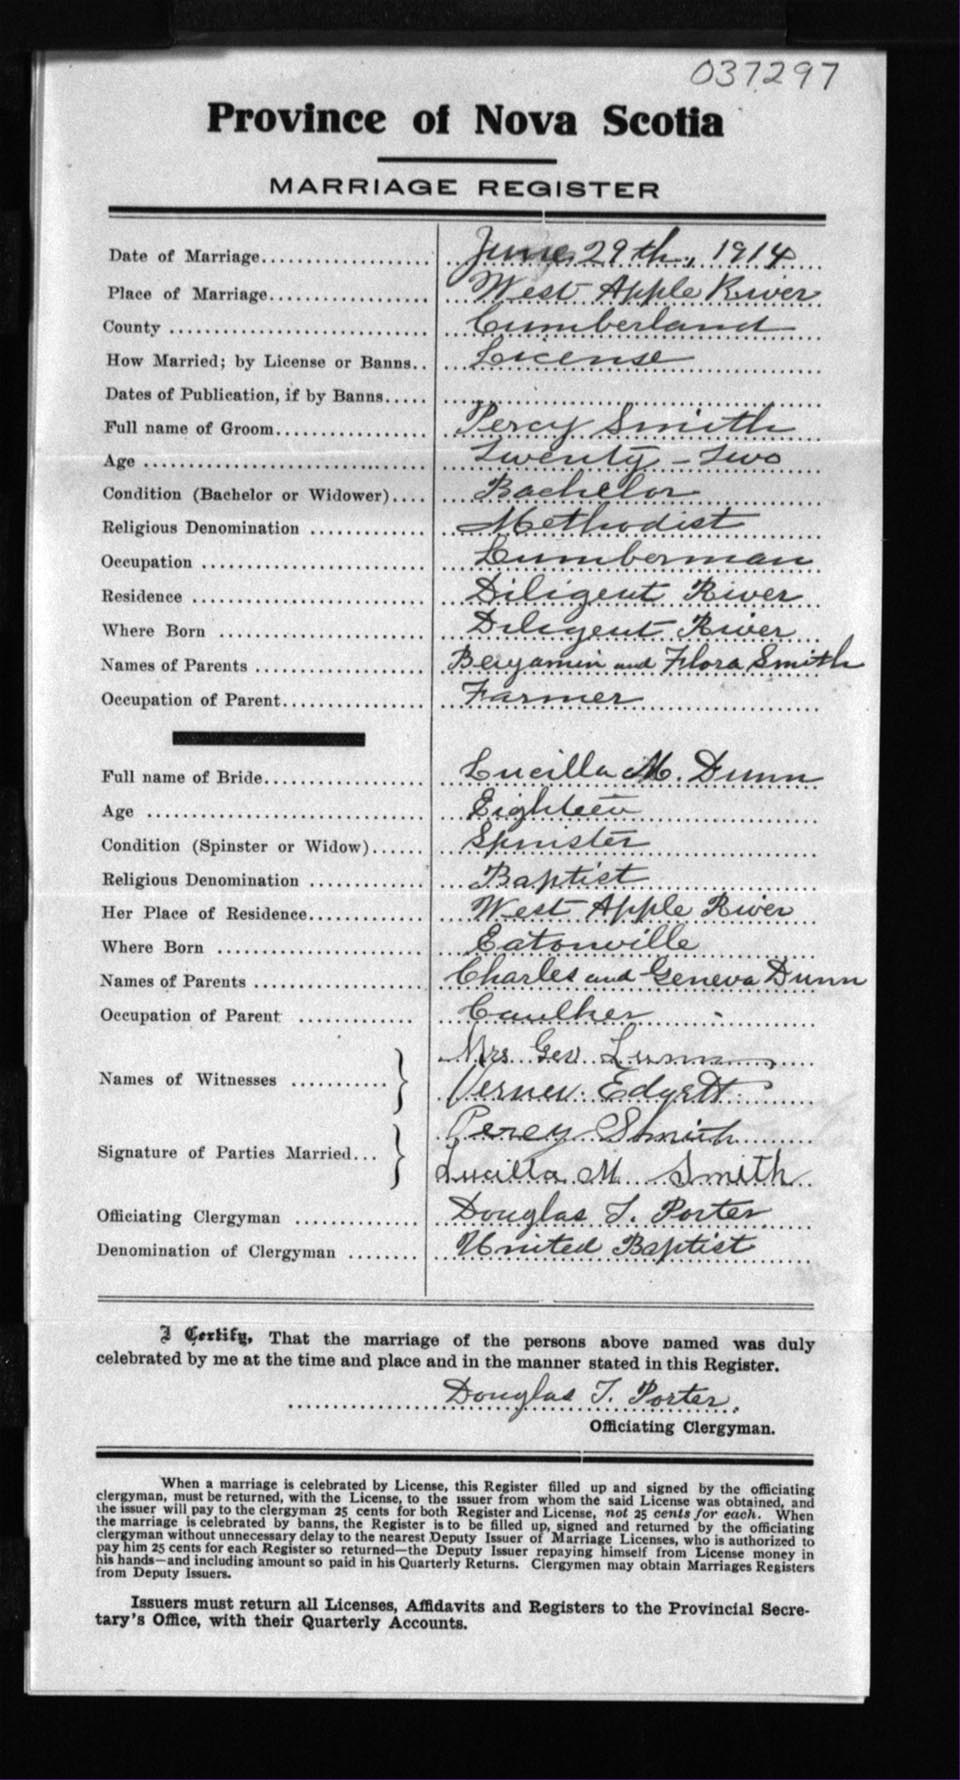 037297
Province of Nova Scotia
MARRIAGE REGISTER
Date of Marriage.................... June 29th, 1914
Place of Marriage................... West Apple River
County .............................. Cumberland
How Married; by License or Banns.. License
Dates of Publication, if by Banns.....
Full name of Groom.................. Percy Smith
Age ................................. Twenty-Two
Condition (Bachelor or Widower).... Bachelor
Religious Denomination ............. Methodist
Occupation .......................... Lumberman
Residence ........................... Diligent River
Where Born ........................ Diligent River
Names of Parents .................... Benjamin and Flora Smith
Occupation of Parent................. Farmer
Full name of Bride................... Lucilla M. Dunn
Age ................................. Eighteen
Condition (Spinster or Widow)...... Spinster
Religious Denomination ............. Baptist
Her Place of Residence............. West Apple River
Where Born ........................ Eatonville
Names of Parents .................... Charles and Geneva Dunn
Occupation of Parent ............. Caulker
Mrs Geo Lunn
Names of Witnesses ...........}
Verner Edgett
Percy Smith
Signature of Parties Married...}
Lucilla M Smith
Officiating Clergyman ............. Douglas T. Porter
Denomination of Clergyman ........ United Baptist
I Certify, That the marriage of the persons above named was duly
celebrated by me at the time and place and in the manner stated in this Register.
Douglas T. Porter.
Officiating Clergyman.
When a marriage is celebrated by License, this Register filled up and signed by the officiating
clergyman, must be returned, with the License, to the issuer from whom the said License was obtained, and
the issuer will pay to the clergyman 25 cents for both Register and License, not 25 cents for each. When
the marriage is celebrated by banns, the Register is to be filled up, signed and returned by the officiating
clergyman without unnecessary delay to the nearest Deputy Issuer of Marriage Licenses, who is authorized to
pay him 25 cents for each Register so returned—the Deputy Issuer repaying himself from License money in
his hands—and including amount so paid in his Quarterly Returns. Clergymen may obtain Marriages Registers
from Deputy Issuers.
Issuers must return all Licenses, Affidavits and Registers to the Provincial Secre-
tary's Office, with their Quarterly Accounts.